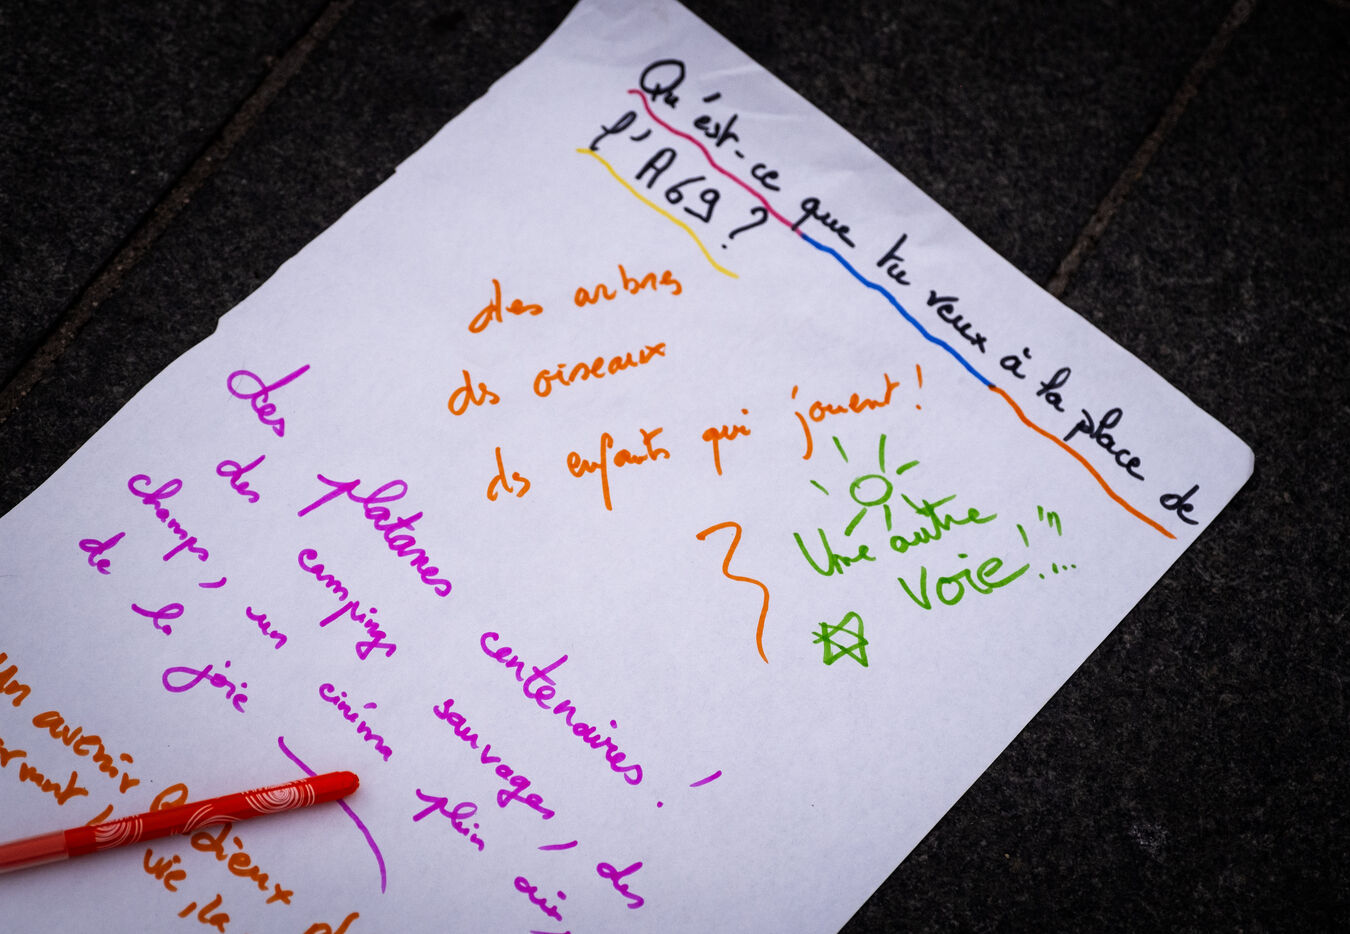 Qu'est-ce que tu veux à la place de
l'A69 ?
des arbres
ds oiseaux
ds enfants qui jouent !
Une autre
voie !...
Les platanes centenaires !
des campings sauvages, des
champs, un cinéma plein air
de la joie
Un avenir
vie, la